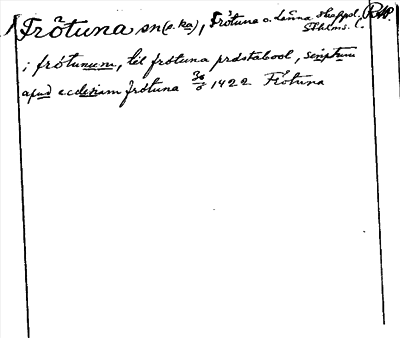 Frötuna sn (o. ka), Frötuna o. Länna skeppsl. Sthlms. (RAP.)
i frötunum, till frötuna prästabool, scriptum
apud ecclesiam frötuna 30/6 1422 Frötuna